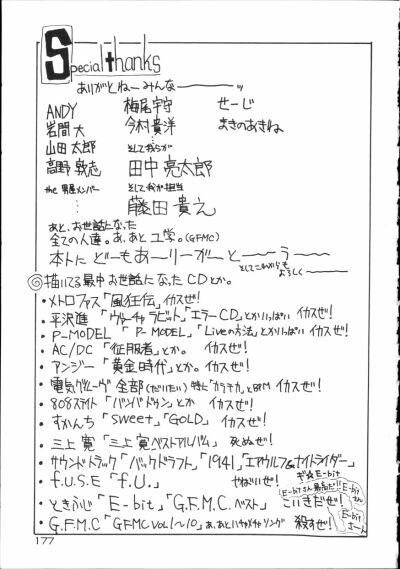 Special thanks
ありがとねーみんなーーーーッ
ANDY 梅尾宇守 せーじ
岩間大 今村貴洋 まきのあきね
山田太郎 そして我らが
高野敦志 田中亮太郎
the 男屋メンバー そして我が担当
藤田貴之
あと、お世話になった
全ての人達。あ、あとユ学。(GFMC)
本トに どーもあーりーがーとーーうーー
そしてこれからもよろしくーー
◎描いてる最中お世話になったCDとか。
・メトロファス「風狂伝」イカスぜ!
・平沢進「ヴァーチャラビット」「エラーCD」とかいっぱい イカスぜ!
・P-MODEL「P-MODEL」「Liveの方法」とかいっぱい イカスぜ!
・AC/DC「征服者」とか。 イカスぜ!
・アンジー「黄金時代」とか。イカスぜ!
・電気グルーヴ 全部(だいたい)特に「カラテカ」とBPM イカスぜ!
・808ステイト「バンバドゥン」とか イカスぜ!
・すかんち「Sweet」「GOLD」 イカスぜ!
・三上寛「三上寛ベストアルバム」 死ぬぜ!
・サウンドトラック「バックドラフト」「1941」「エアウルフ&ナイトライダー」
・f.U.S.E「f.U.」 やねいぜ!
ギ☆E-bit
E-bitさん最高だ!!
E-bitさん
・ときふじ「E-bit」「G.F.M.C.ベスト」 こいきだぜ!
E-bitさーん
・G.F.M.C「GFMC VOL 1~10」あ、あとハチャメチャソング 殺すぜ!
177